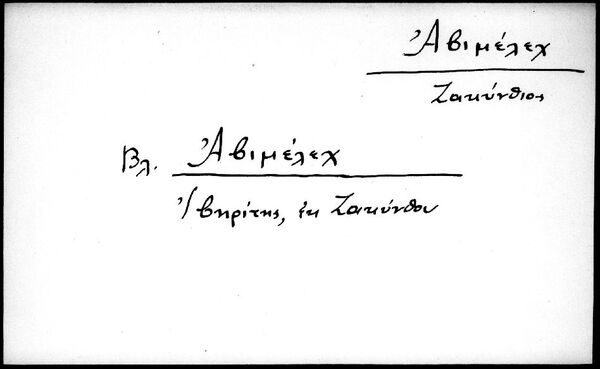 Ἀβιμέλεχ
Ζακύνθιος
Βλ. Ἀβιμέλεχ
Ἰβηρίτης, ἐκ Ζακύνθου